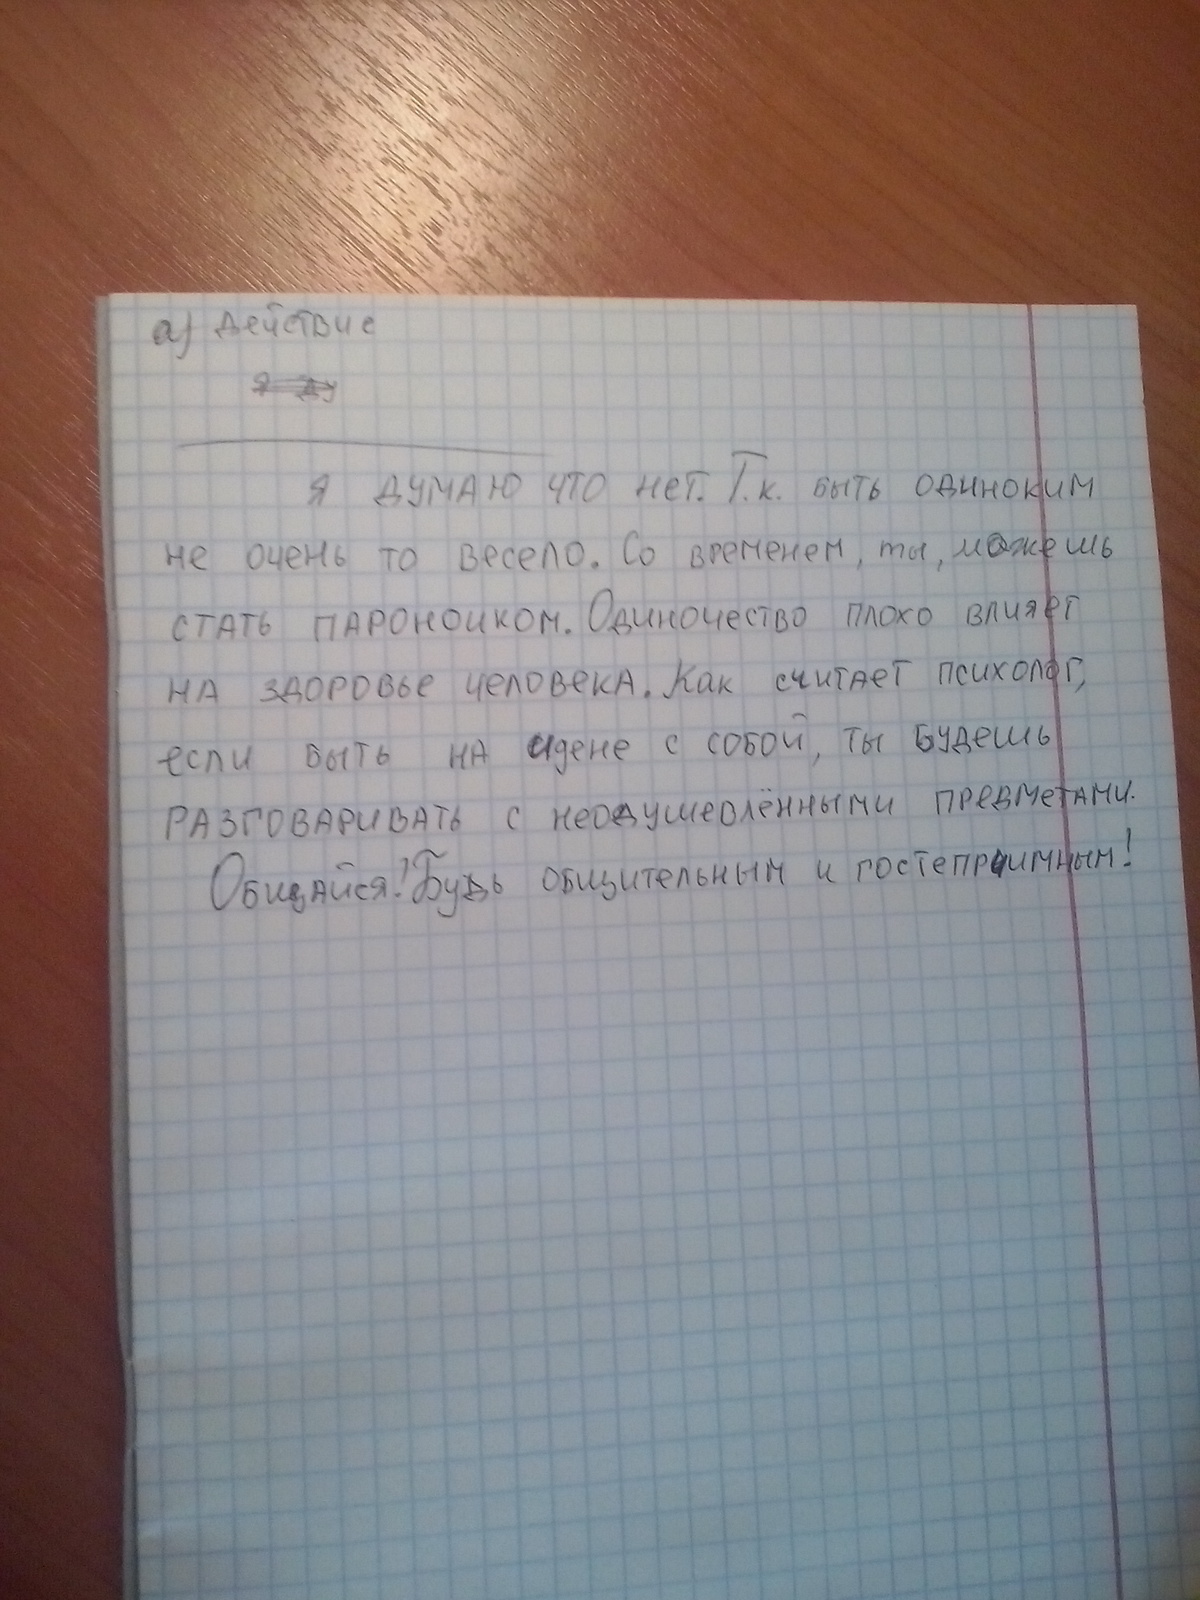 а) Действие
Я ду
Я думаю что нет. Т.к. быть одиноким
не очень то весело. Со временем, ты, можешь
стать пароноиком. Одиночество плохо влияет
на здоровье человека. Как считает психолог,
если быть на идене с собой, ты будешь
разговаривать с неодушевлёнными предметами.
Общайся! Будь общительным и гостеприимным!